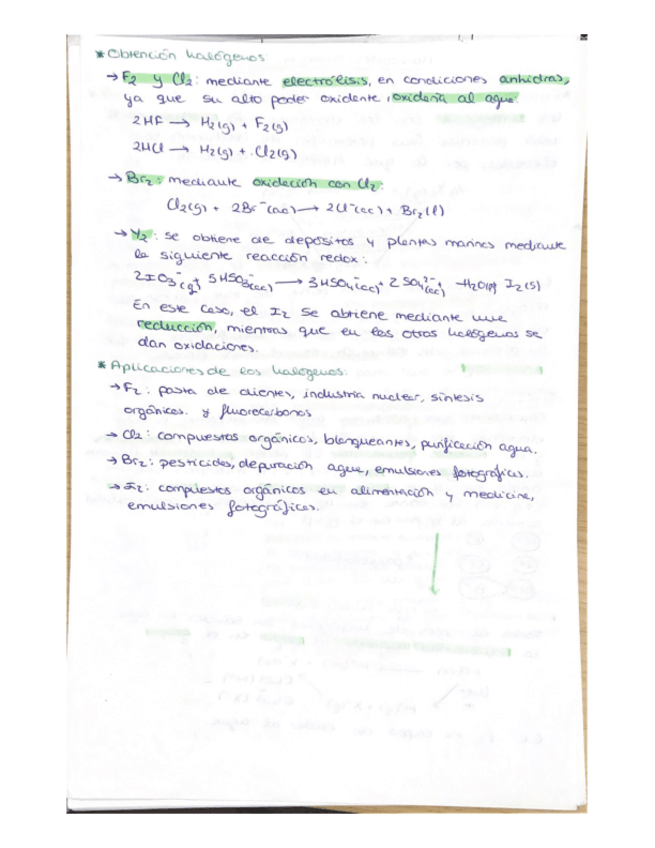 * Obtención halógenos
→ F₂ y Cl₂: mediante electrólisis, en condiciones anhidras,
ya que su alto poder oxidante, oxidaría al agua.
2HF → H₂(g) + F₂(g)
2HCl → H₂(g) + Cl₂(g)
→ Br₂: mediante oxidación con Cl₂:
Cl₂(g) + 2Br⁻(ac) → 2Cl⁻(ac) + Br₂(l)
→ Y₂: se obtiene de depósitos y plantas marinas mediante
la siguiente reacción redox:
2IO₃⁻(g) + 5HSO₃⁻(ac) → 3HSO₄⁻(ac) + 2SO₄²⁻(ac) + H₂O(l) I₂(s)
En este caso, el I₂ se obtiene mediante una
reducción, mientras que en los otros halógenos se
dan oxidaciones.
* Aplicaciones de los halógenos:
→ F₂: pasta de dientes, industria nuclear, síntesis
orgánicas. y fluorocarbonos
→ Cl₂: compuestos orgánicos, blanqueantes, purificación agua.
→ Br₂: pesticidas, depuración agua, emulsiones fotográficas.
→ I₂: compuestos orgánicos en alimentación y medicina,
emulsiones fotográficas.